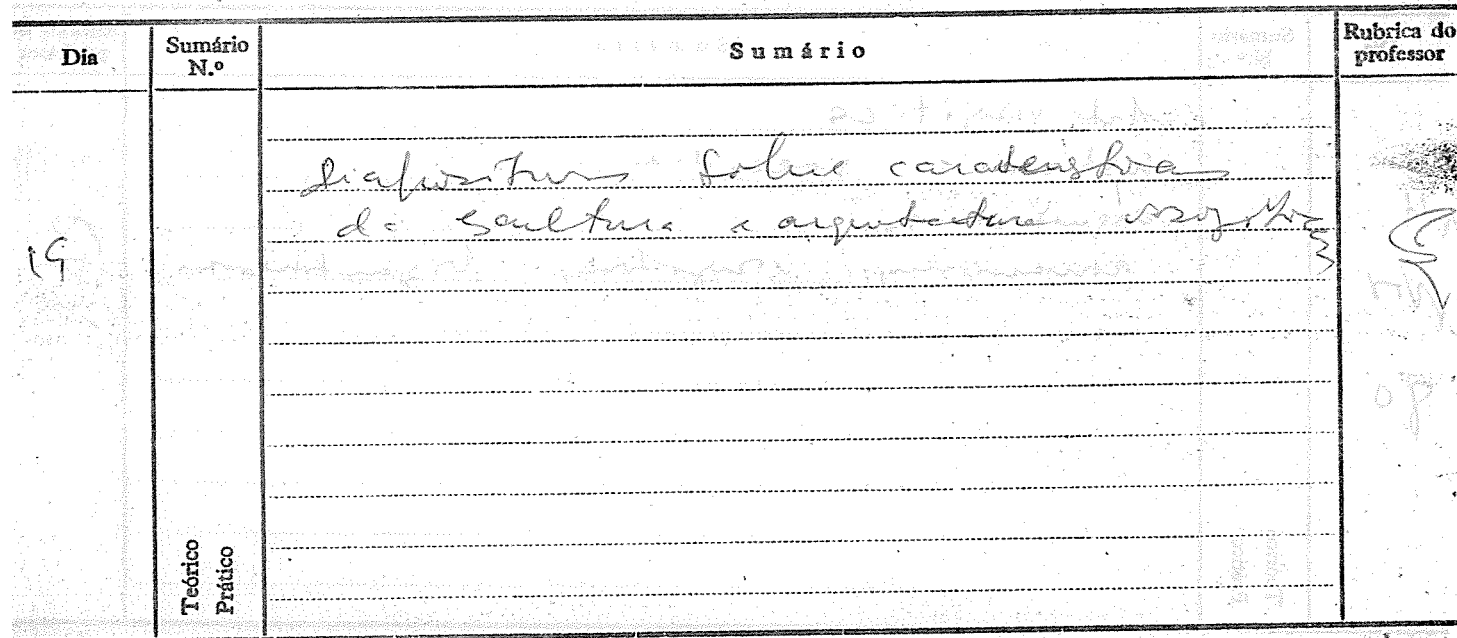 Dia
Sumário N.º
Sumário
Rubrica do professor
Diapositivos sobre características
da escultura e arquitectura visigóticas
19
Teórico
Prático